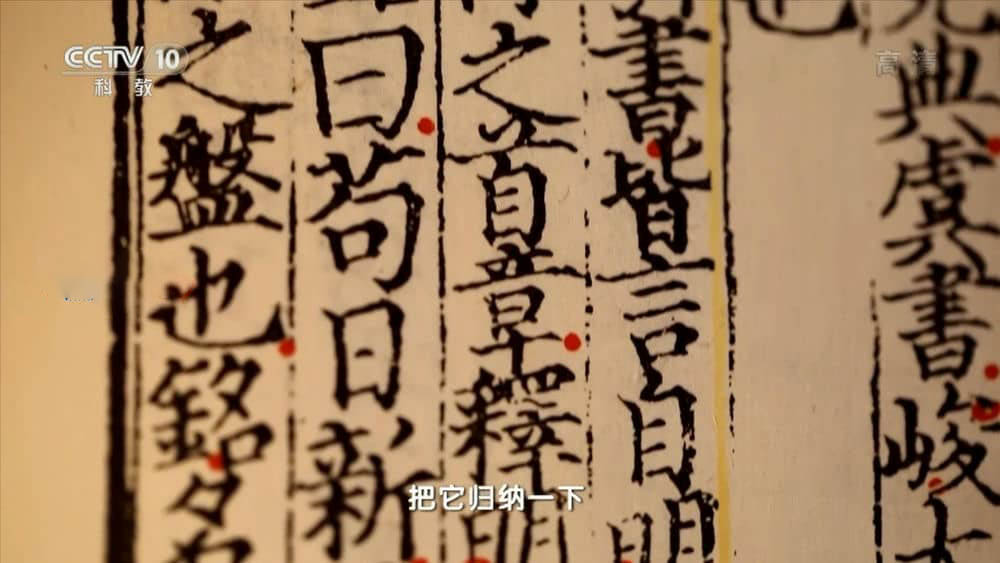 CCTV 10
科教
高清
典虞書峻大
也
書皆言自明
之首章釋明
曰苟日新
之盤也銘名
把它归纳一下